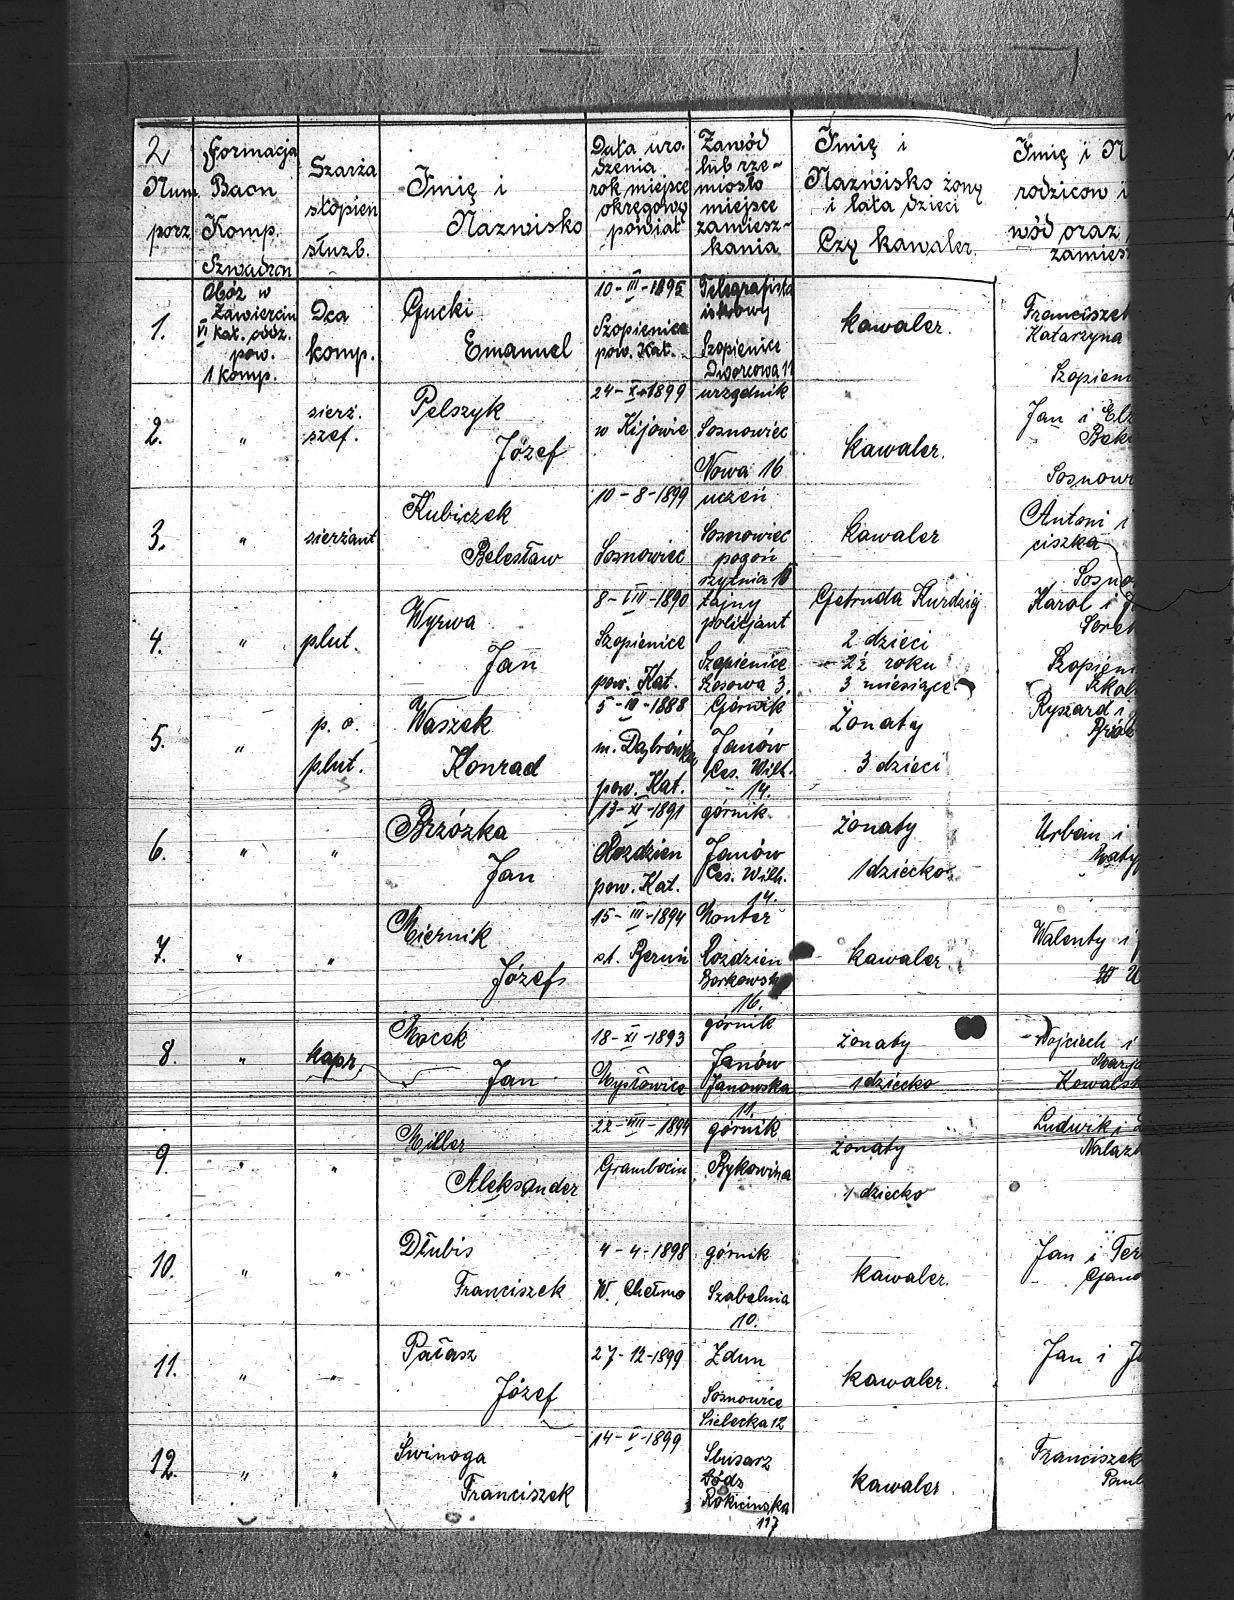 2
Num.
porz.
Formacja
Baon
Komp.
Szwadron
Szarża
stopień
służb.
Imię i
Nazwisko
Data uro-
dzenia
rok miejsce
okręgowy
powiat
Zawód
lub rze-
miosło
miejsce
zamiesz-
kania
Imię i
Nazwisko żony
i lata dzieci
Czy kawaler.
Imię i N
rodziców i
wód oraz
zamies
1.
Obóz w
Zawierciu
VI
kat. odz.
pow.
1 komp.
Dca
komp.
Gucki
Emanuel
10-III-1895
Szopienice
pow. Kat.
Telegrafista
iskrowy
Szopienice
Dworcowa 11
kawaler.
Franciszek
Katarzyna
Szopieni
2.
"
sierż.
szef.
Pelszyk
Józef
24-X-1899
w Kijowie
urzędnik
Sosnowiec
Nowa 16
kawaler.
Jan i Elż
Sosnow
3.
"
sierżant
Kubiczek
Bolesław
10-8-1899
Sosnowiec
uczeń
Sosnowiec
pogoń
żytnia 10
kawaler
Antoni i
ciszka
Sosno
4.
"
plut.
Wyrwa
Jan
8-VIII-1890
Szopienice
pow. Kat.
tajny
policjant
Szopienice
Szosowa 3.
Getruda Kurdzig
2 dzieci
2½ roku
3 miesiące
Karol i
Szopieni
5.
"
p. o.
plut.
Waszek
Konrad
5-IV-1888
m. Dąbrówka
pow. Kat.
Górnik
Janów
Ces. Wilh.
14.
żonaty
3 dzieci
Ryszard i
6.
"
"
Brzózka
Jan
13-XI-1891
Rozdzień
pow. Kat.
górnik.
Janów
Ces. Wilh.
14.
żonaty
1 dziecko
Urban i
7.
"
"
Miernik
Józef
15-III-1894
st. Bieruń
Monter
Rozdzień
Borkowska
16.
kawaler
Walenty i
8.
"
kapr.
Mocek
Jan
18-XI-1893
Mysłowice
górnik
Janów
Janowska
11.
żonaty
1 dziecko
Wojciech i
Marja
Kowalsk
9
"
"
Miller
Aleksander
22-VIII-1894
Grambocin
górnik
Bykowina
żonaty
1 dziecko
Ludwik i
10.
"
"
Dłubis
Franciszek
4-4-1898
W. Chełmo
górnik
Szabelnia
10.
kawaler.
Jan i Ter
11.
"
"
Pałasz
Józef
27-12-1899
Zdun
Sosnowice
Sielecka 12
kawaler.
Jan i
12.
"
"
Świnoga
Franciszek
14-V-1899
Slusarz
Łódz
Rokicinska
117
kawaler
Franciszek